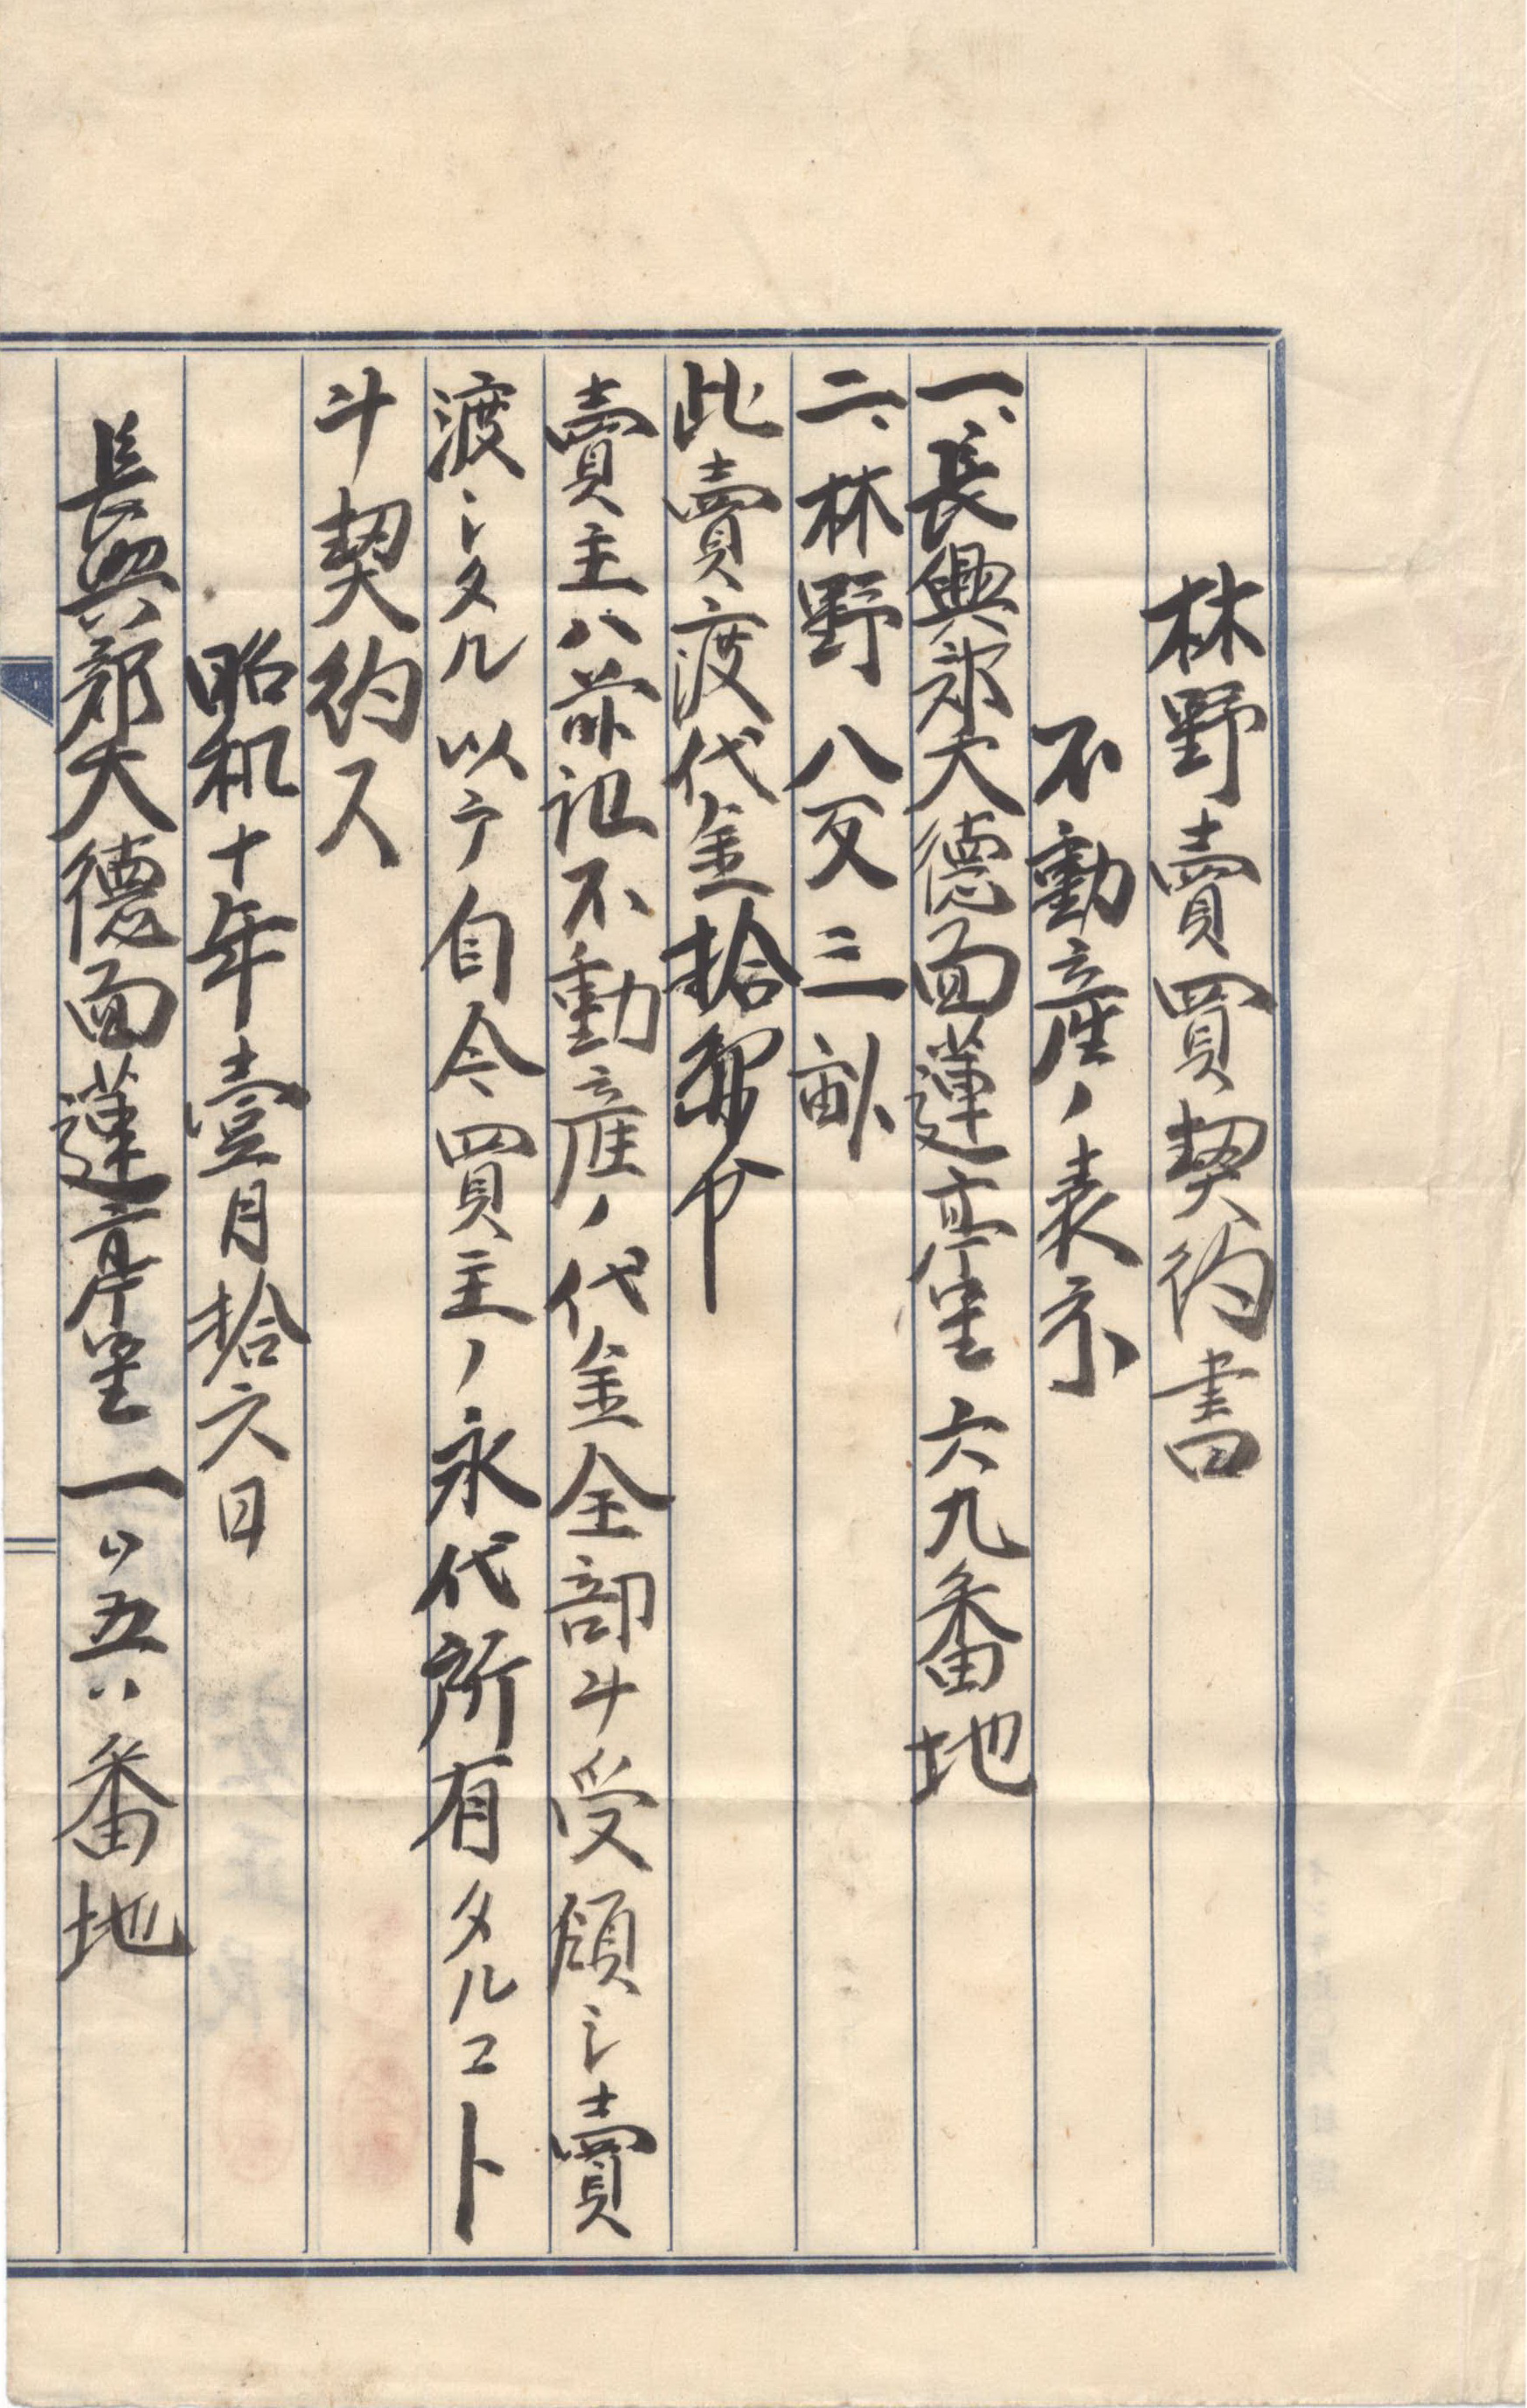 林野賣買契約書
不動産ノ表示
一、長興郡大德面蓮亭里六九番地
二、林野八反三畝
此賣渡代金拾
賣主ハ前記不動産ノ代金全部ヲ受領シ賣
渡シタル以テ自今買主ノ永代所有タルコト
ヲ契約ス
昭和十年壹月拾六日
長興郡大德面蓮亭里一〃五〃番地